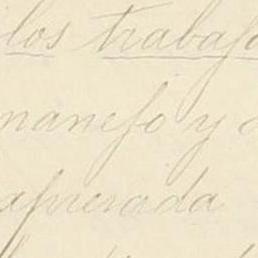 los trabajo
manejo y
apresada